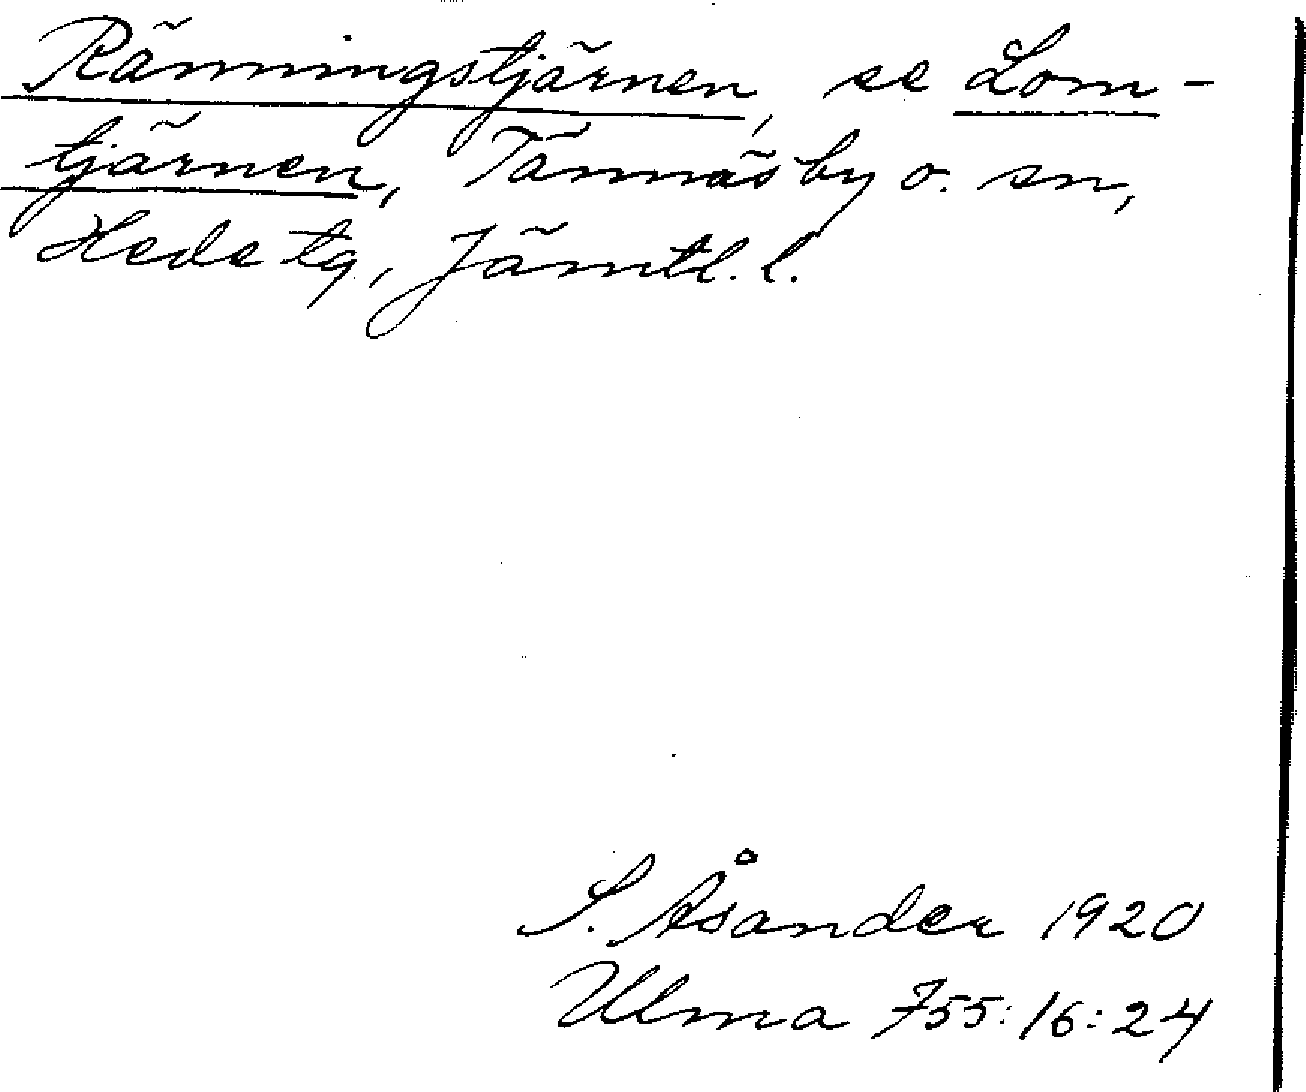 Ränningstjärnen, se Lom-
tjärnen, Tännäs by o. sn,
Hede tg, Jämtl. l.
S. Åsander 1920
Ulma 755:16:24